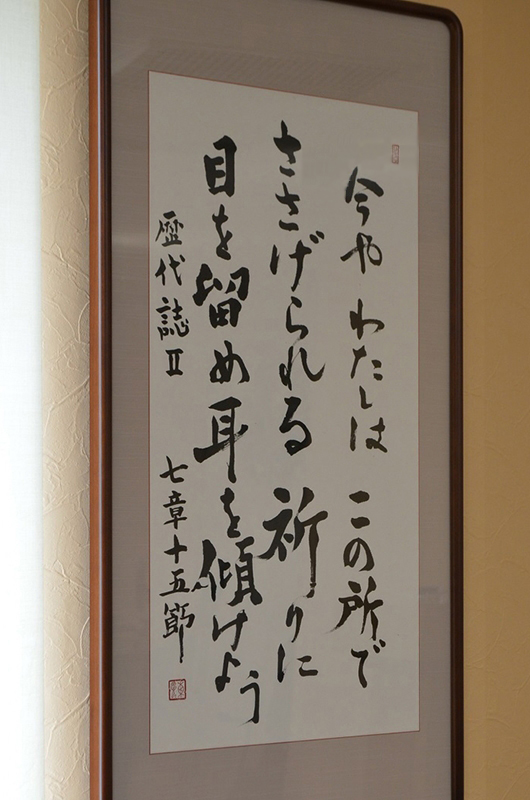 今やわたしはこの所で
ささげられる祈りに
目を留め耳を傾けよう
歴代誌Ⅱ 七章十五節